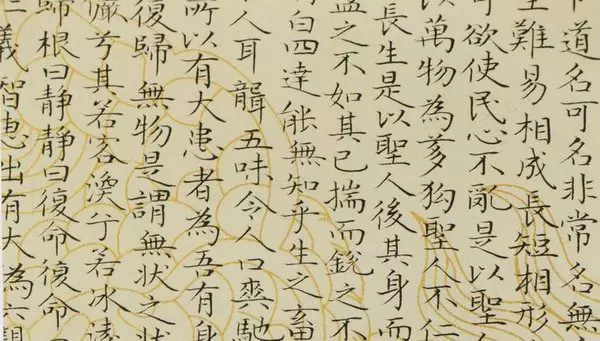 道名可名非常名無
難易相成長短相形
可欲使民心不亂是以聖
以萬物為芻狗聖人不仁
長生是以聖人後其身而
盈之不如其已揣而銳之不
白四達能無知乎生之畜
人耳聾五味令人口爽馳
所以有大患者為吾有身
復歸無物是謂無狀之狀
儼兮其若客渙兮若冰
歸根曰靜靜曰復命復命
義智惠出有大為六親